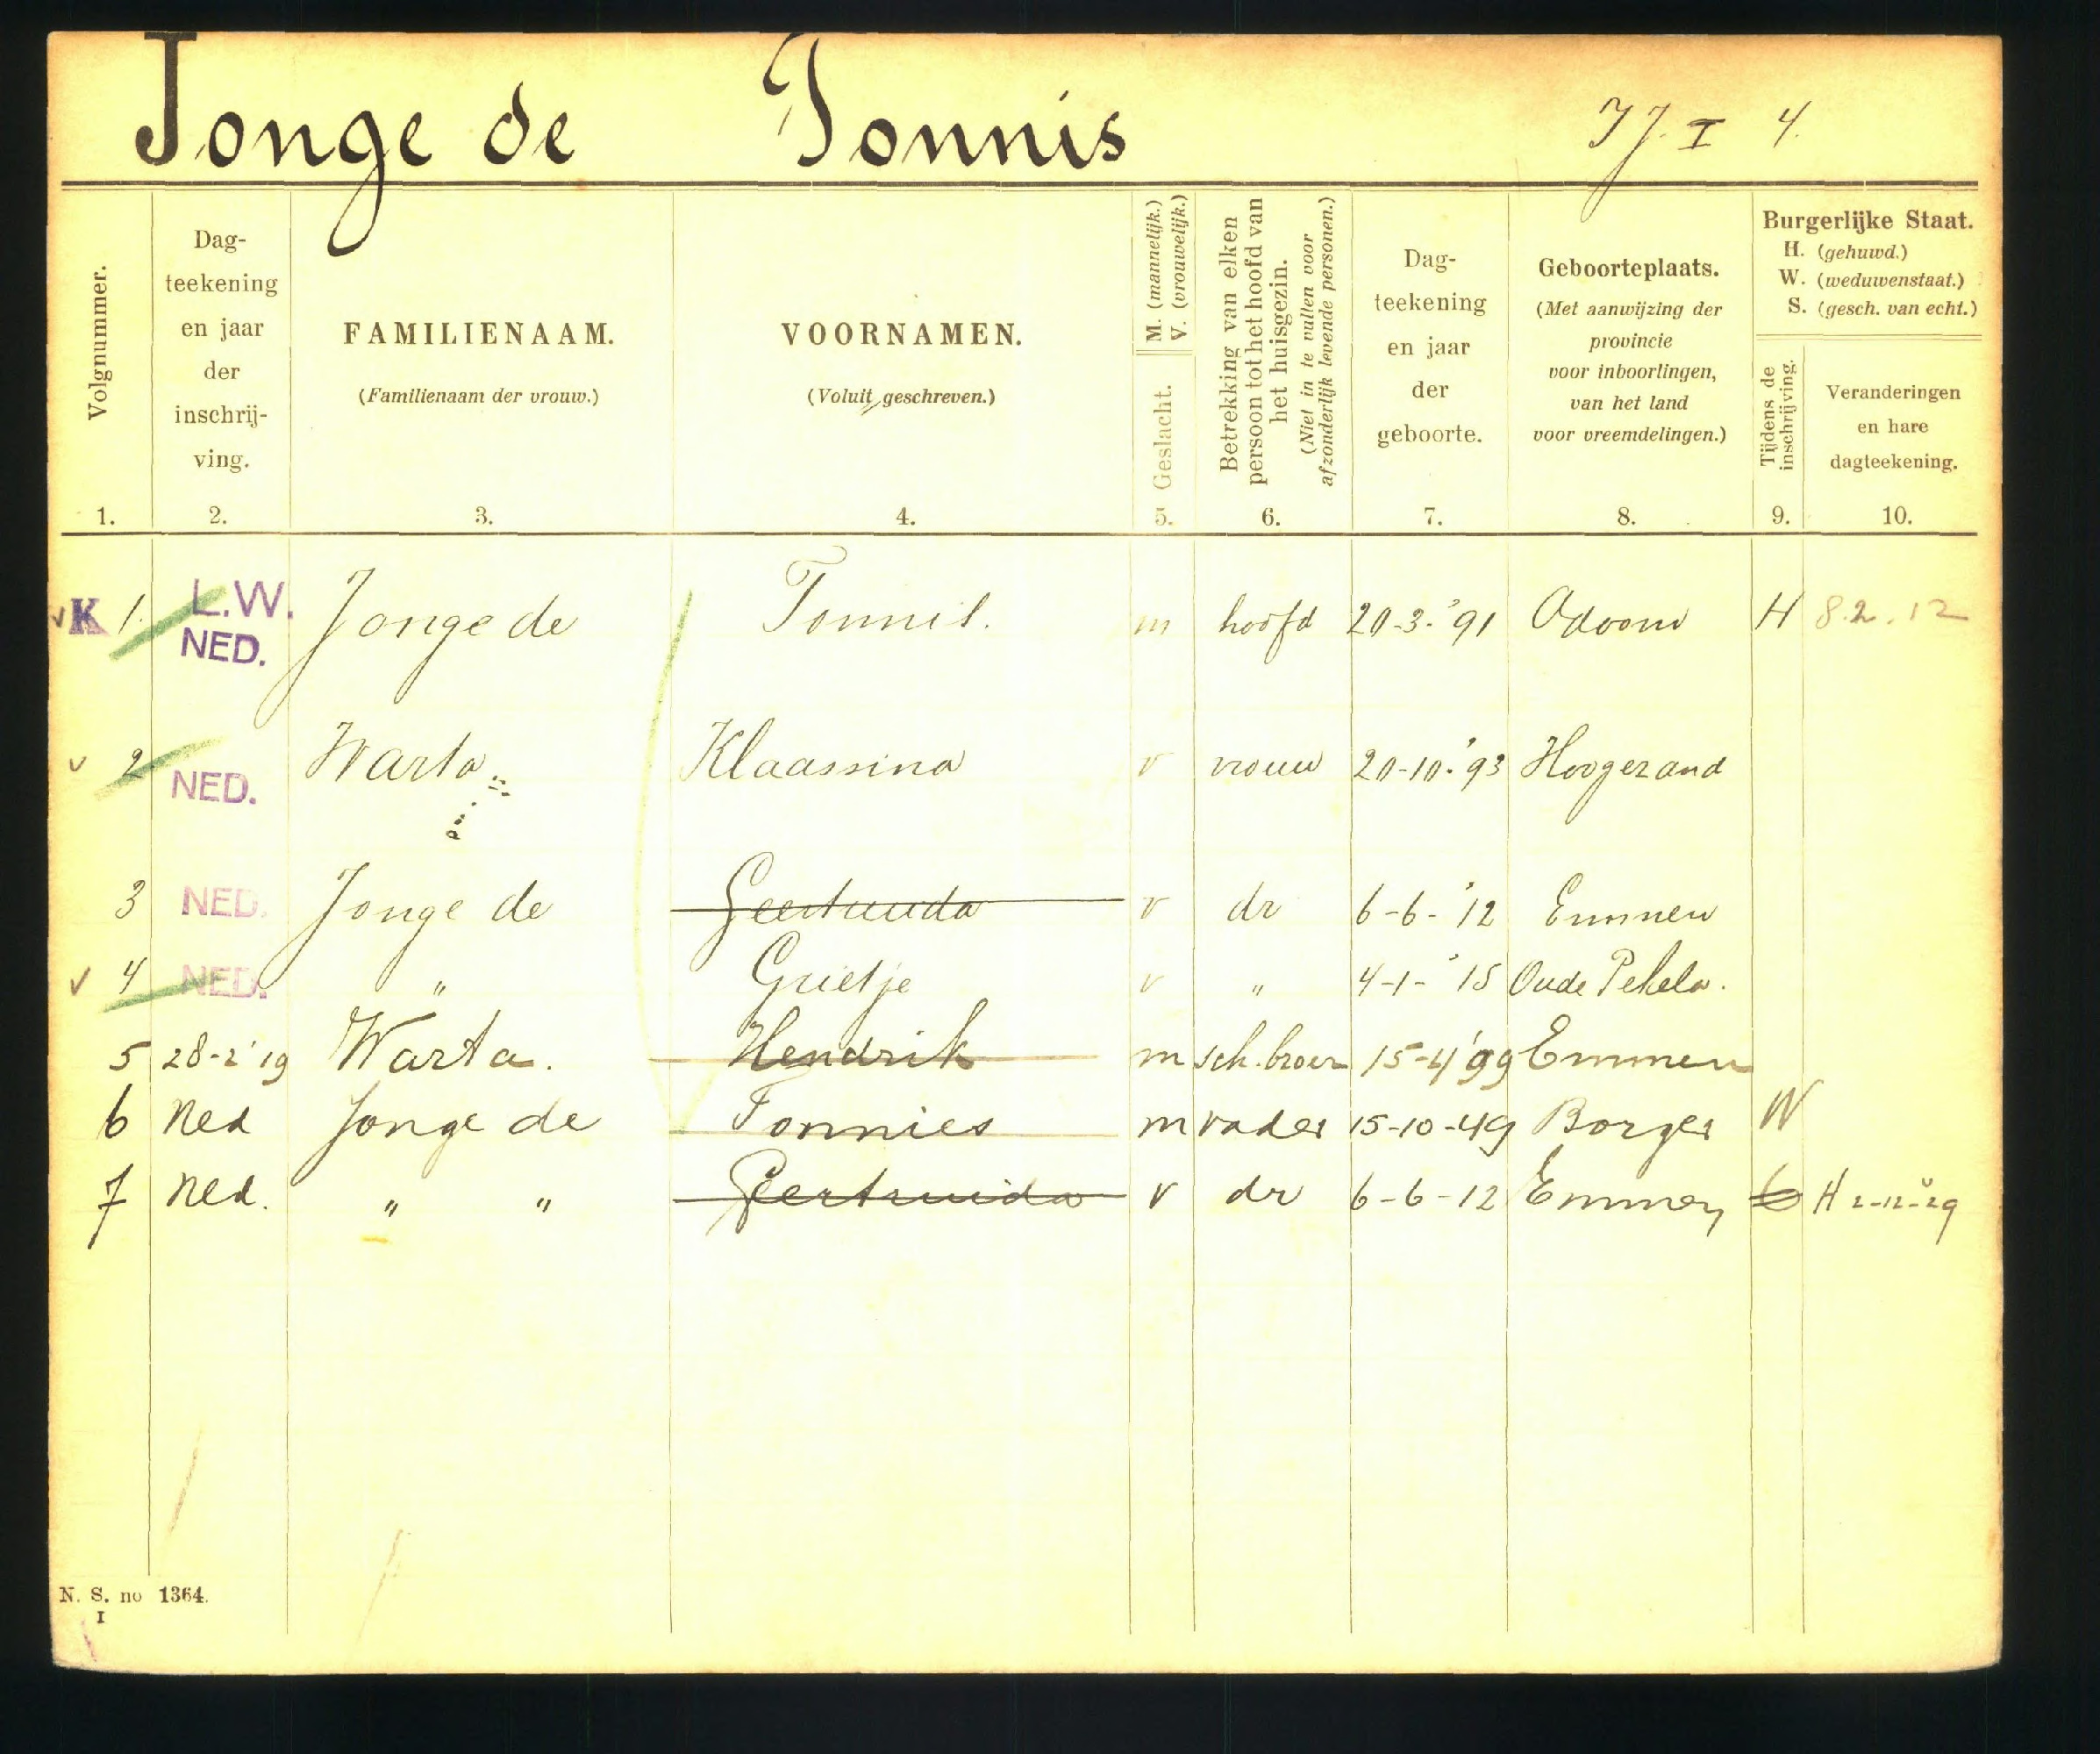 Jonge de Tonnis JJ. I 4.
Volgnummer.
Dag-
teekening
en jaar
der
inschrij-
ving.
FAMILIENAAM.
(Familienaam der vrouw.)
VOORNAMEN.
(Voluit geschreven.)
M. (mannelijk.)
V. (vrouwelijk.)
Geslacht.
Betrekking van elken
persoon tot het hoofd van
het huisgezin.
(Niet in te vullen voor
afzonderlijk levende personen.)
Dag-
teekening
en jaar
der
geboorte.
Geboorteplaats.
(Met aanwijzing der
provincie
voor inboorlingen,
van het land
voor vreemdelingen.)
Burgerlijke Staat.
H. (gehuwd.)
W. (weduwenstaat.)
S. (gesch. van echt.)
Tijdens de
inschrijving.
Veranderingen
en hare
dagteekening.
1. 2. 3. 4. 5. 6. 7. 8. 9. 10.
K 1. L.W. NED. Jonge de Tonnis. m hoofd 20-3-'91 Odoorn H 8.2.12
2 NED. Warta Klaassina v vrouw 20-10-'93 Hoogezand
3 NED. Jonge de Geertruida v dr 6-6-'12 Emmen
4 NED. " Grietje v " 4-1-'15 Oude Pekela.
5 28-2'19 Warta. Hendrik m sch.broer 15-4'99 Emmen
6 Ned Jonge de Tonnies m vader 15-10-49 Borger W
7 Ned. " " Geertruida v dr 6-6-12 Emmen H 2-12-29
N. S. no 1364.
I